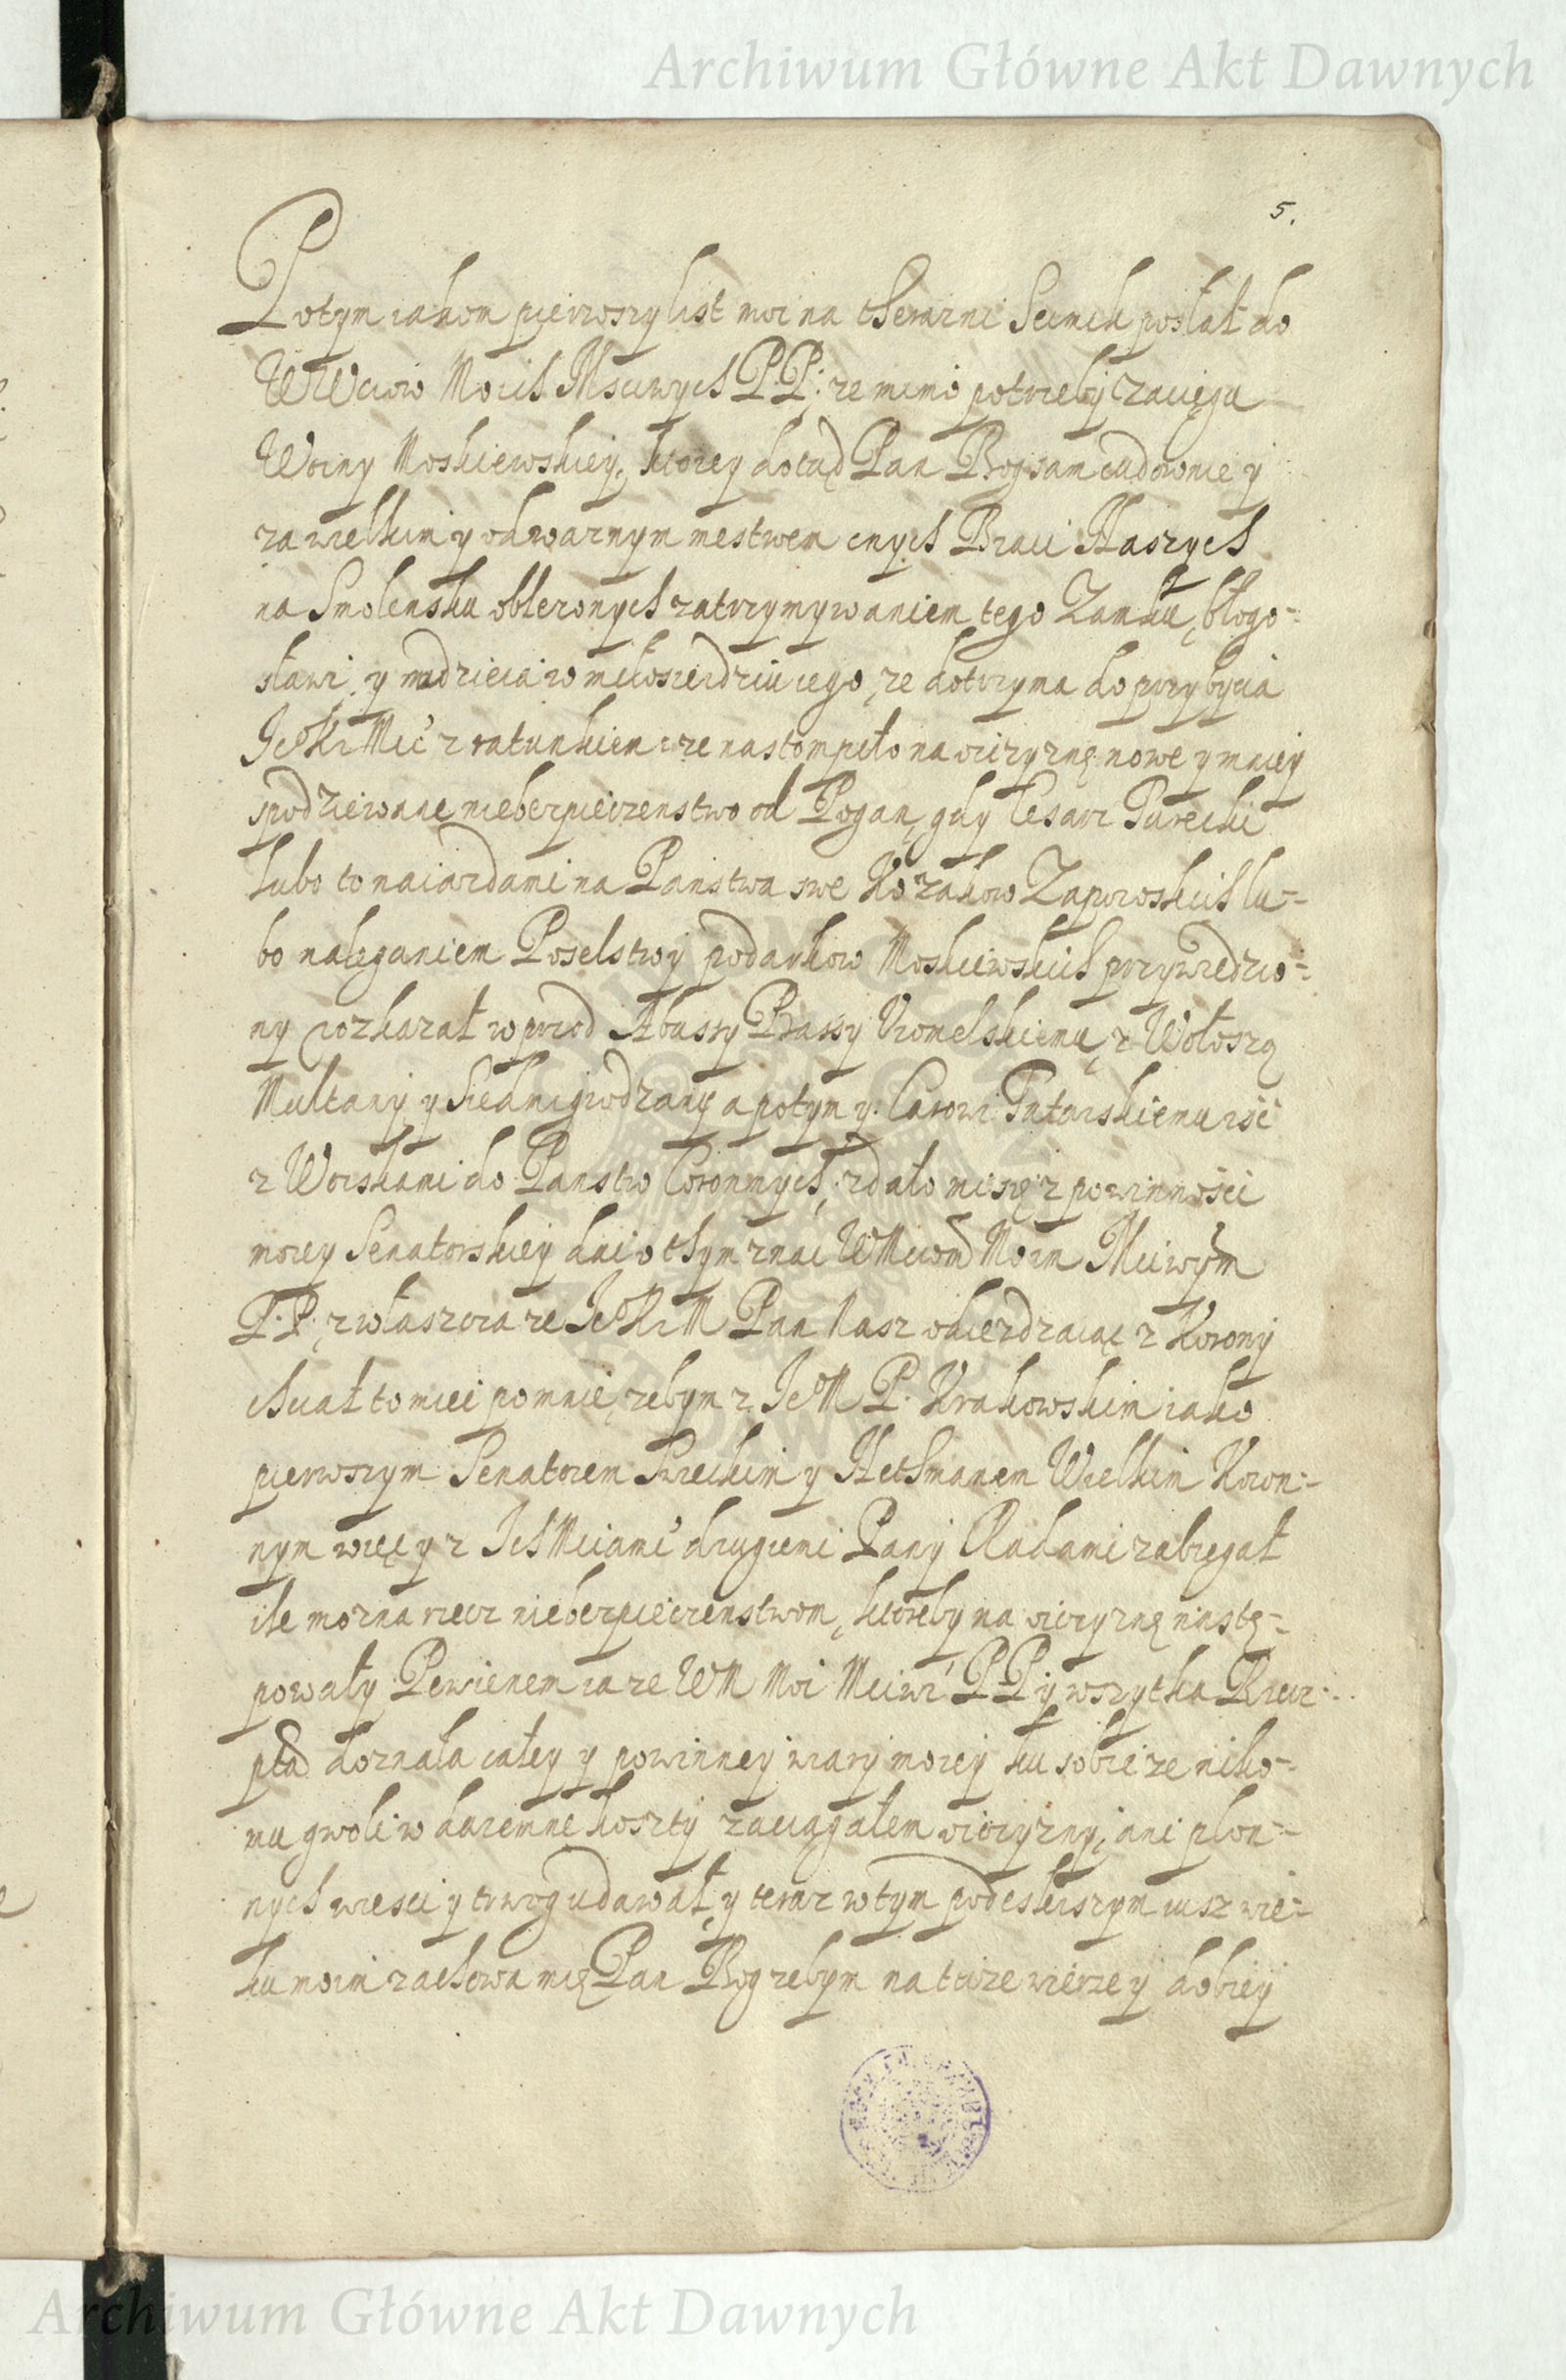 Archiwum Główne Akt Dawnych
5.
Potym iakom pierwszy list moi na theraznı Seimik posłał do
WMciow Moich Msciwych P.P: ze mimo potrzeby zaciągu
Woiny Moskiewskiey, ktorey dotąd Pan Bog sam cudownie y
za wielkim y odwaznym mestwem cnych Braci Naszych
na Smolensku oblezonych zatrzymywaniem tego Zamku, błogo=
sławi, y nadzieia w miłosierdziu iego, ze dotrzyma do przybycia
Je° K: Mci z ratunkiem: ze nastompiło na oiczyznę nowe y mniey
spodziewane niebezpieczenstwo od Pogan, gdy Cesarz Turecki
lubo to naiazdami na Panstwa swe Kozakow Zaporoskich lu=
bo naleganiem Poselstwy podarkow Moskiewskich przywiedzio=
ny rozkazał wprzod Abassy Bassy Uromelskiemu, z Wołoszą
Multany y Siedmigrodzany a potym y Carowi Tatarskiemu isć
z Woiskami do Panstw Coronnych, zdało mi się z powinnosci
moiey Senatorskiey dac o thym znac WMciom Moim Mciwym
P.P. zwłaszcza ze Je° K: M Pan Nasz odiezdzaiąc z Korony
chciał to miec po mnie, zebym z Je° M P. Krakowskim iako
pierwszym Senatorem Swieckim y Hethmanem Wielkim Koron=
nym więc y z Ich Mciami drugiemi Pany Radami zabiegał
ile mozna rzecz niebezpieczenstwom, ktoreby na oiczyznę nastę=
powały. Pewienem ia ze WM Moi Mciwi P P y wszytka Rzecz=
pta doznała całey y powinney wiary moiey ku sobie ze niko=
mu gwoli w daremne koszty zaciągałem oiczyzny, ani płon=
nych wiesci y trwog udawał, y teraz w tym podeszłszym iusz wie=
ku moim zachowa mię Pan Bog zebym na teize wierze y dobrey
Archiwum Główne Akt Dawnych